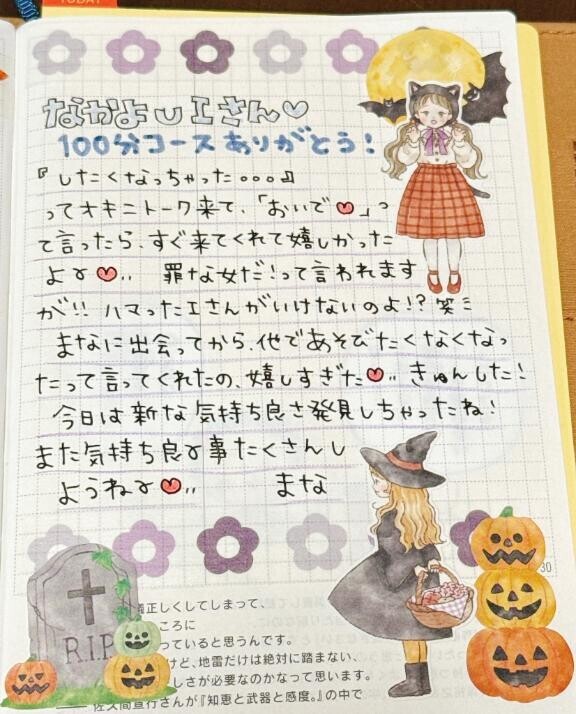 TODAY
なかよしIさん♡
100分コースありがとう!
『したくなっちゃった。。。』
ってオキニトーク来て、「おいで♥」っ
て言ったら、すぐ来てくれて嬉しかった
よɤ♥‥ 罪な女だ!って言われます
が!! ハマったIさんがいけないのよ!? 笑ミ
まなに出会ってから、他であそびたくなくなっ
たって言ってくれたの、嬉しすぎた♥‥ きゅんした!
今日は新な気持ち良さ発見しちゃったね!
また気持ち良ɤ事たくさんし
ようねɤ♥‥ まな
R.I.P
30
正しくしてしまって、
ころに
っていると思うんです。
けど、地雷だけは絶対に踏まない、
しさが必要なのかなって思います。
佐久間宣行さんが『知恵と武器と感度。』の中で